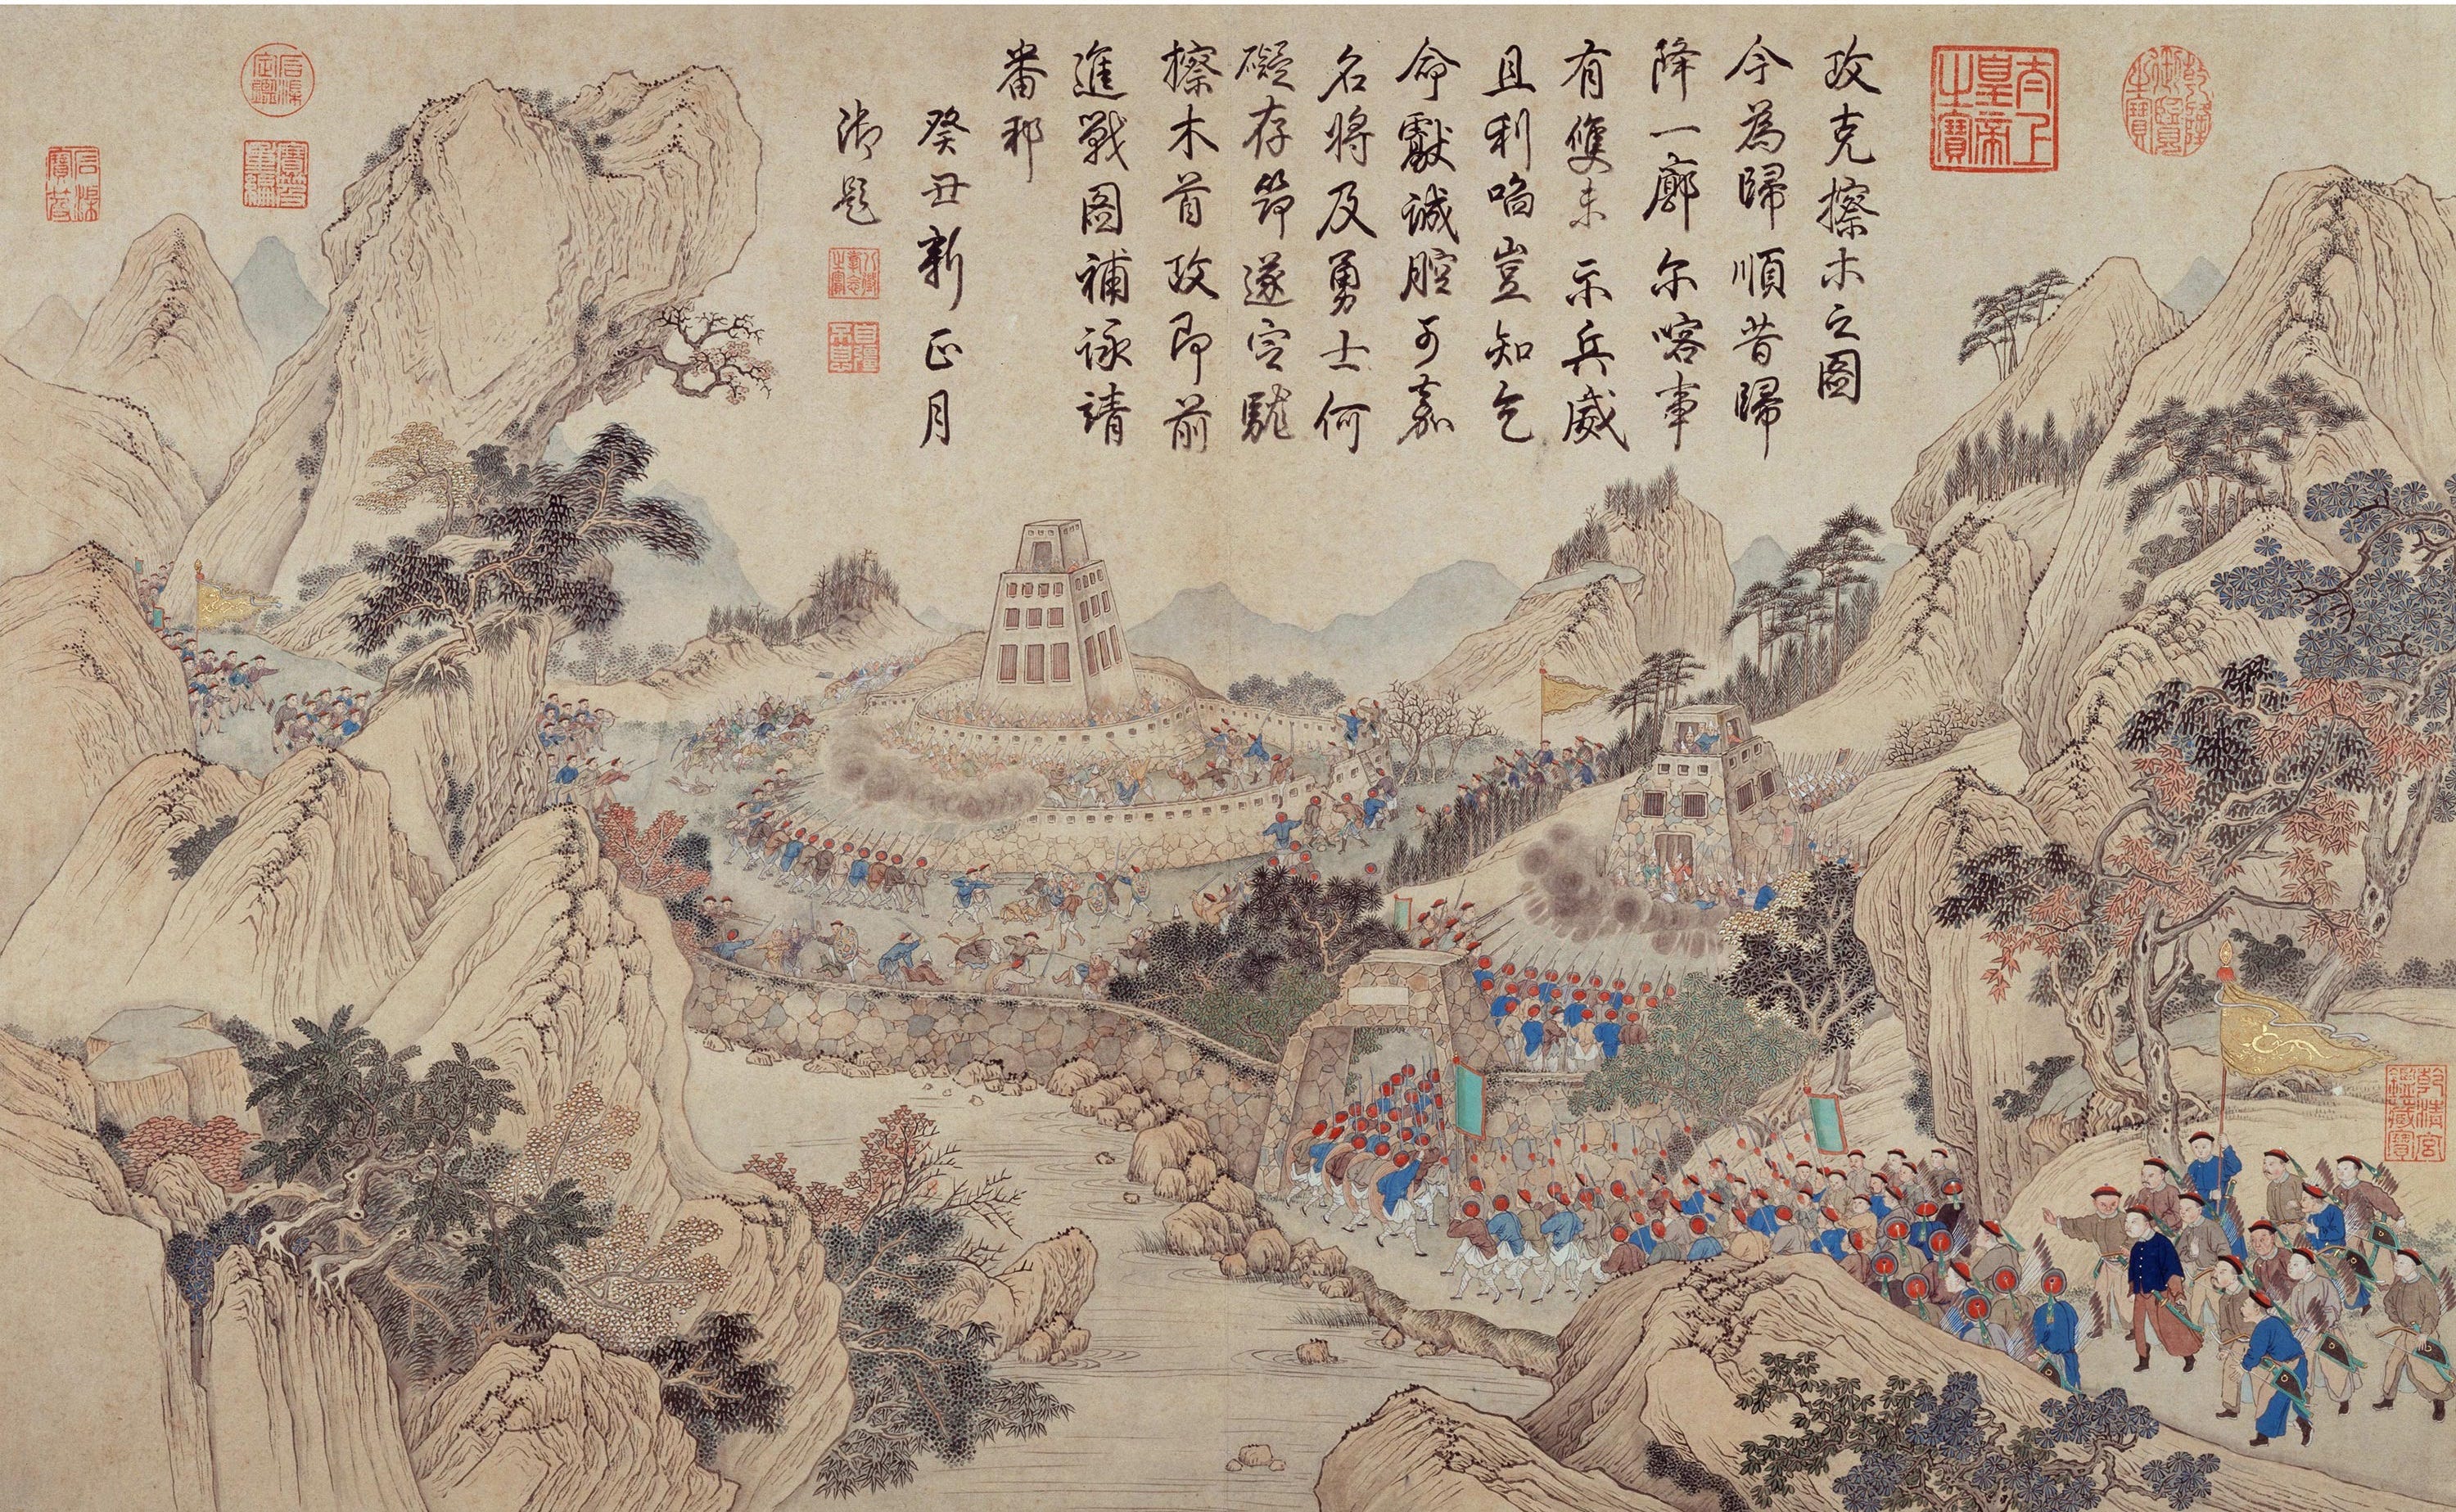 乾隆御覽之寶
太上皇帝之寶
攻克擦木之圖
今為歸順昔歸
降一廓尔喀事
有雙未示兵威
且利啗豈知乞
命獻誠腔可嘉
名將及勇士何
礙存筇遂定駹
擦木首攻即前
進戰圖補詠靖
番邦
癸丑新正月
御題
八徵耄念之寶
自彊不息
石渠定鑑
寶笈重編
石渠寶笈
乾清宮鑑藏寶